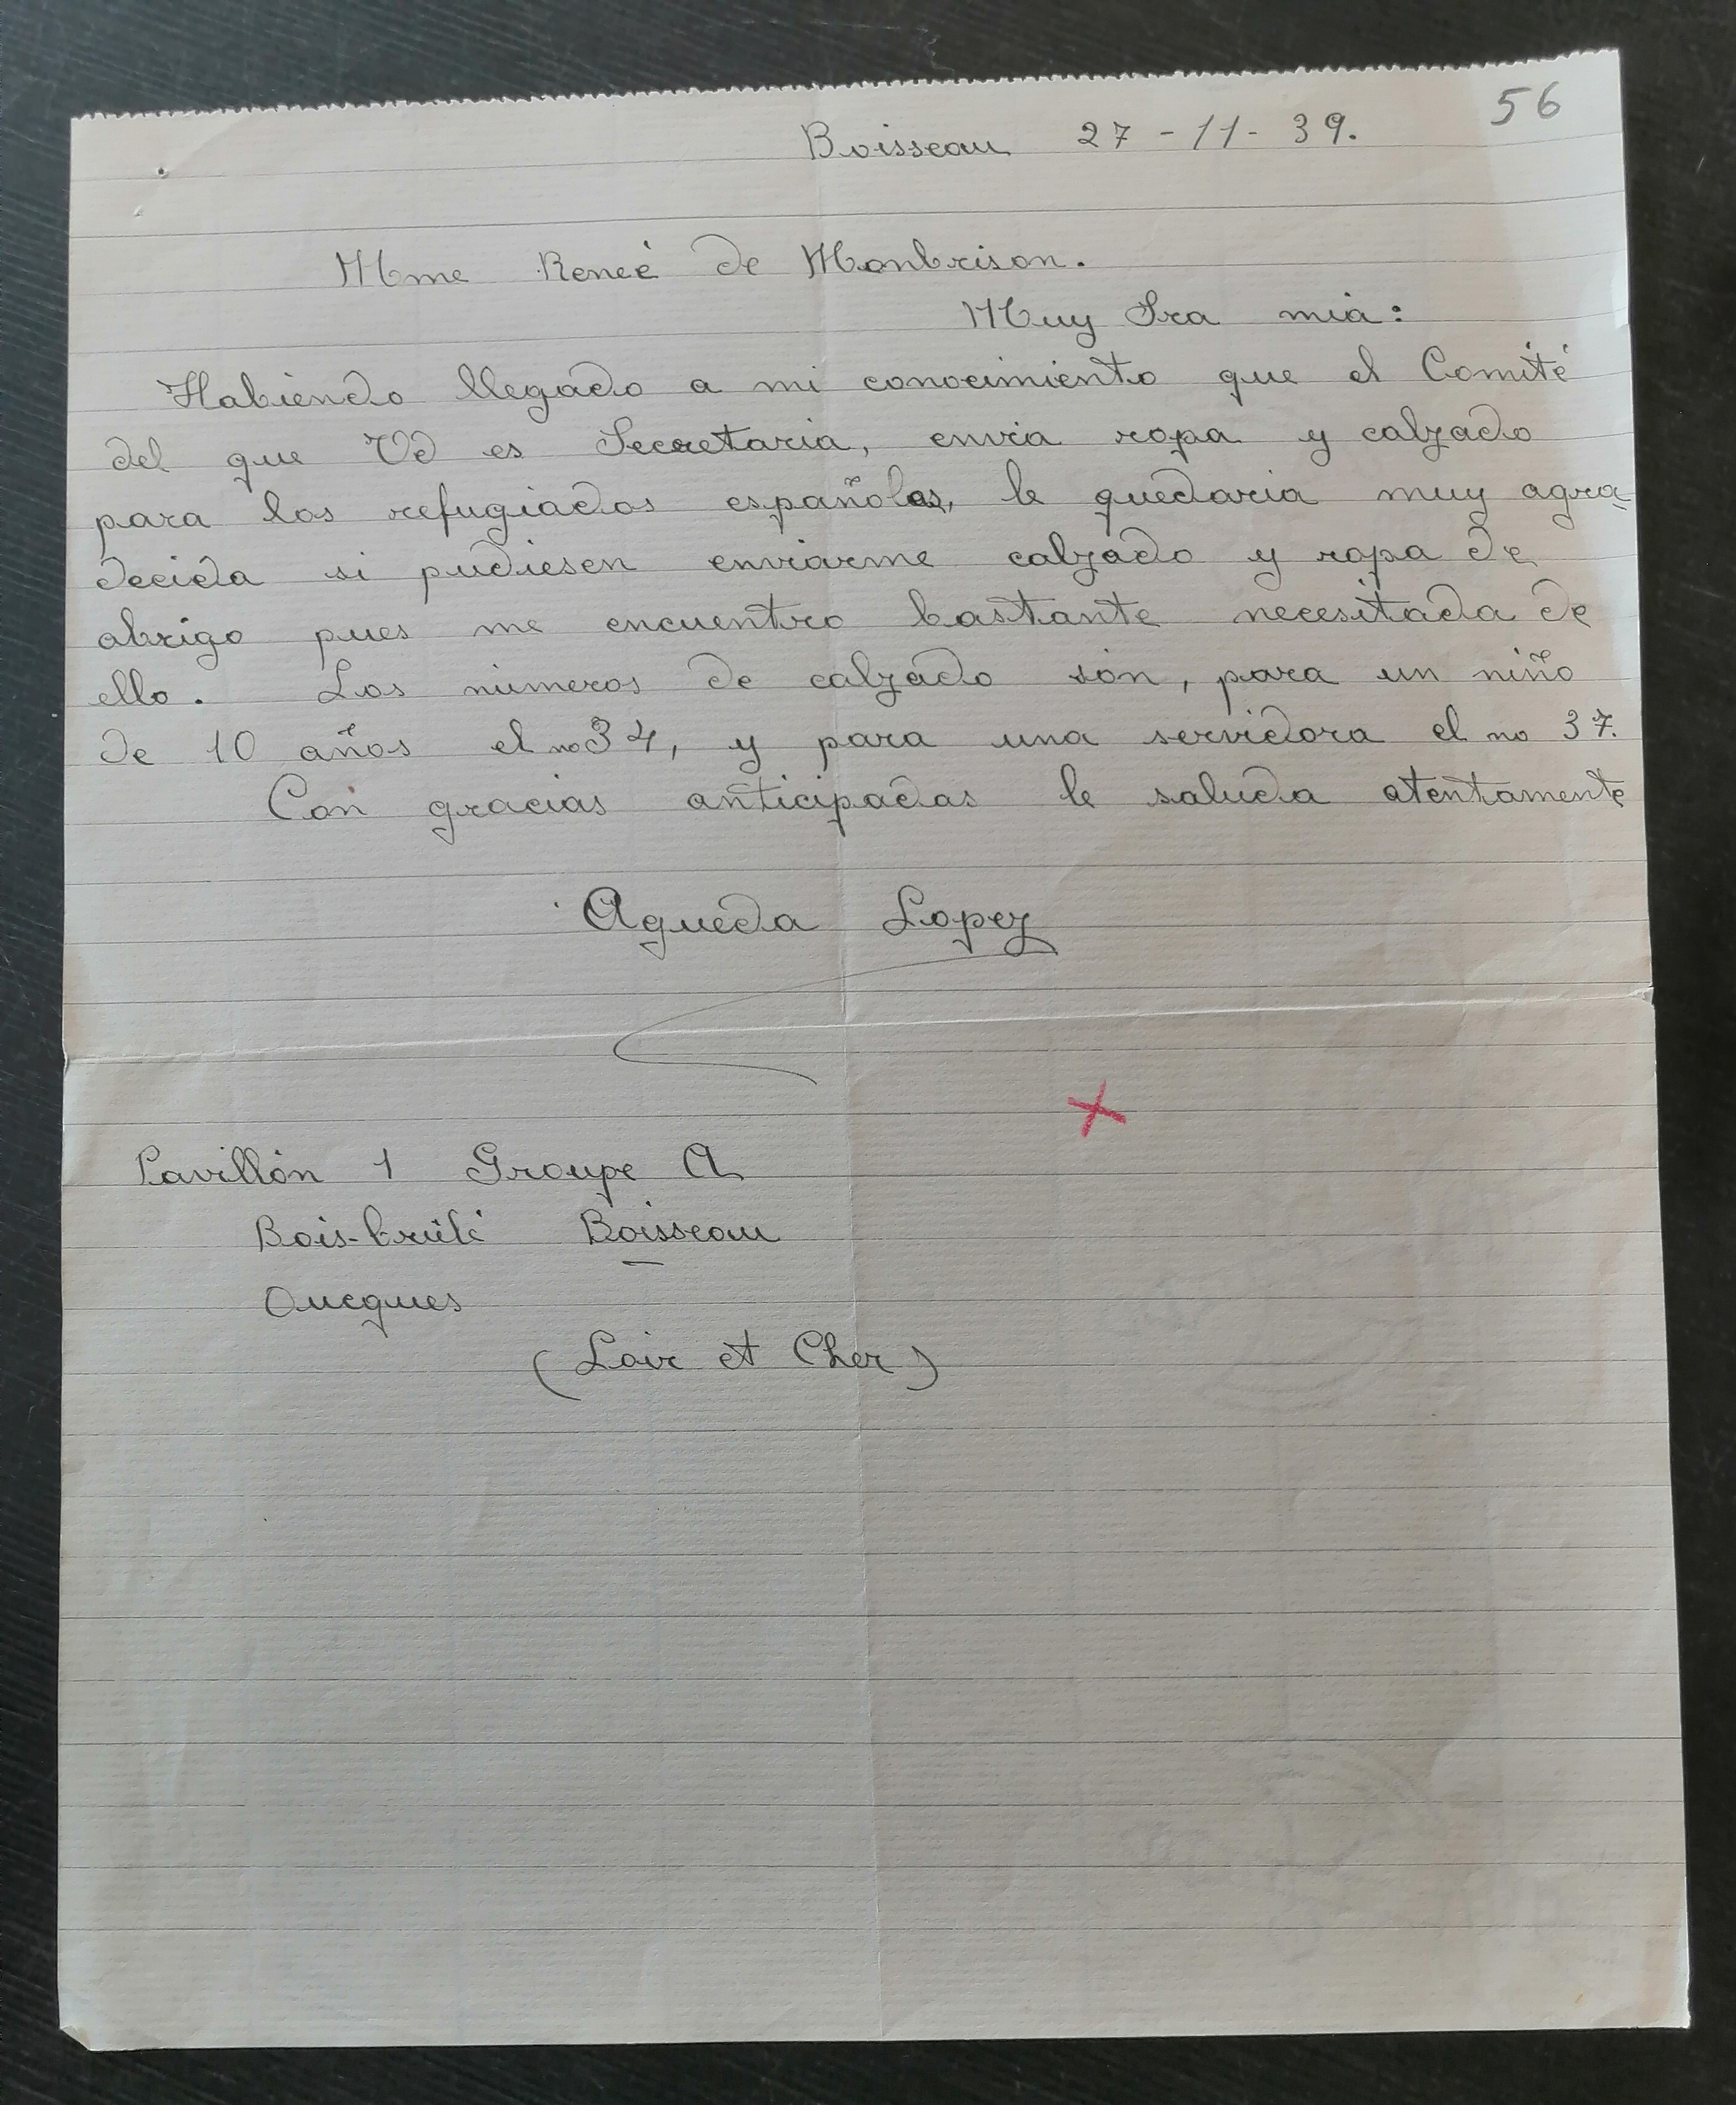 56
Boisseau 27-11-39.
Mme Reneé de Monbrison.
Muy Sra mia:
Habiendo llegado a mi conocimiento que el Comité
del que Vd es Secretaria, envia ropa y calzado
para los refugiados españoles, le quedaria muy agra-
decida si pudiesen enviarme calzado y ropa de
abrigo pues me encuentro bastante necesitada de
ello. Los números de calzado són, para un niño
de 10 años el no 34, y para una servidora el no 37.
Con gracias anticipadas le saluda atentamente
Agueda Lopez
Pavillón 1 Groupe A
Bois-brûlé Boisseau
Oucques
(Loir et Cher)